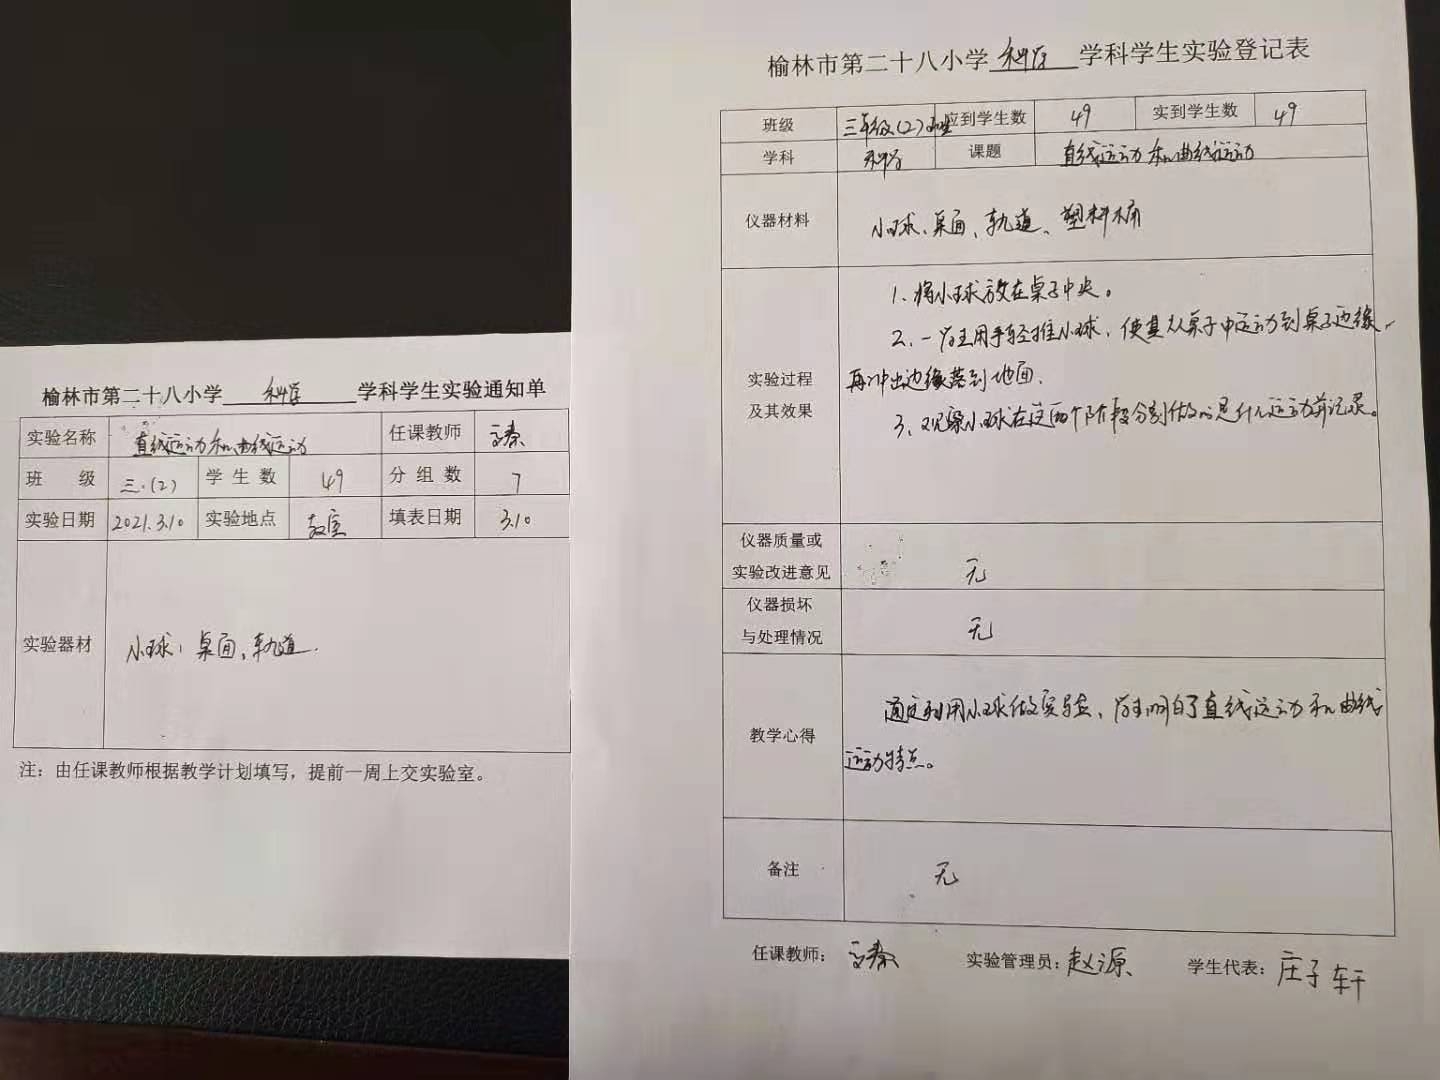 榆林市第二十八小学 科学 学科学生实验通知单
实验名称 直线运动和曲线运动 任课教师
班 级 三.(2) 学 生 数 49 分 组 数 7
实验日期 2021.3.10 实验地点 教室 填表日期 3.10
实验器材 小球、桌面、轨道.
注：由任课教师根据教学计划填写，提前一周上交实验室。
榆林市第二十八小学 科学 学科学生实验登记表
班级 三年级(2)班 应到学生数 49 实到学生数 49
学科 科学 课题 直线运动和曲线运动
仪器材料 小球、桌面、轨道、塑料桶
实验过程
及其效果
1、将小球放在桌子中央。
2、一学生用手轻推小球，使其从桌子中运动到桌子边缘，
再冲出边缘落到地面.
3、观察小球在这两个阶段分别做的是什么运动并记录。
仪器质量或
实验改进意见 无
仪器损坏
与处理情况 无
教学心得
通过利用小球做实验、学生明白了直线运动和曲线
运动特点。
备注 无
任课教师： 实验管理员：赵源 学生代表：庄子轩